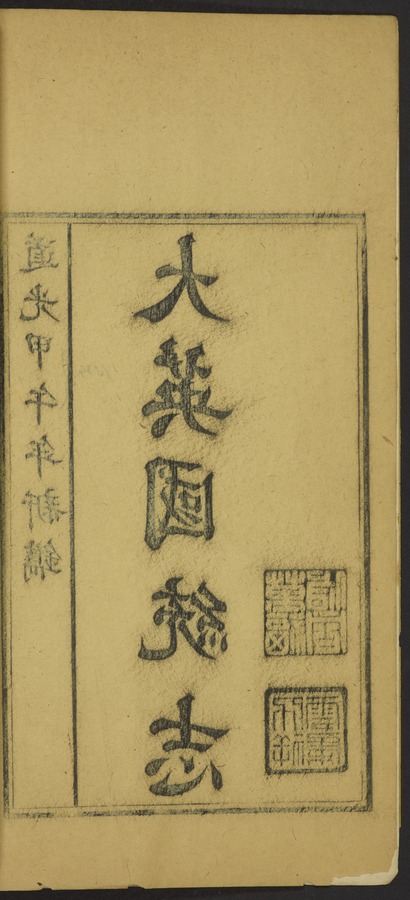 大英國統志
道光甲午年新鐫